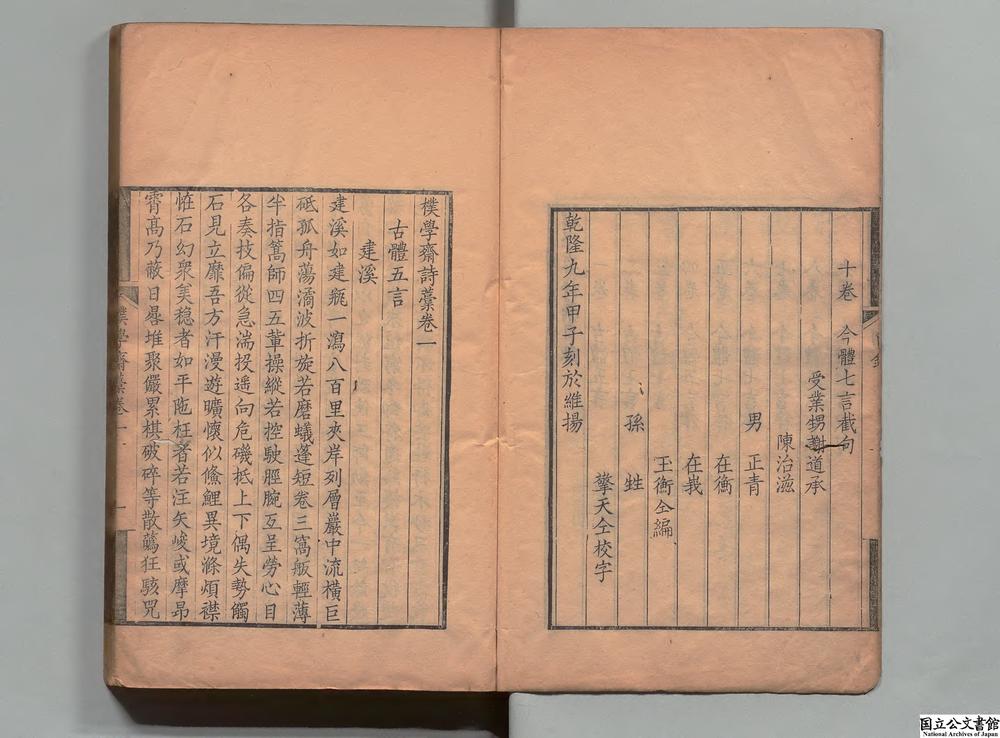 十卷 今體七言截句
受業甥謝道承
陳治滋
男 正青
在衡
在義
玉衡仝編
孫 甡
擎天仝校字
乾隆九年甲子刻於維揚
樸學齋詩藁卷一
古體五言
建溪
建溪如建瓶一瀉八百里夾岸列層巖中流橫巨
砥孤舟蕩潏波折旋若磨蟻蓬短卷三窩舨輕薄
半指篙師四五輩操縱若控駛脛腕互呈勞心目
各奏技偏從急湍投遥向危磯抵上下偶失勢觸
石見立靡吾方汗漫遊曠懷似鯈鯉異境滌煩襟
恠石幻衆美穏者如平陁枉者若注矢峻或摩昂
霄髙乃蔽日晷堆聚儼累棋破碎等散蘤狂駭兕
樸學齋藁卷一
一
国立公文書館
National Archives of Japan